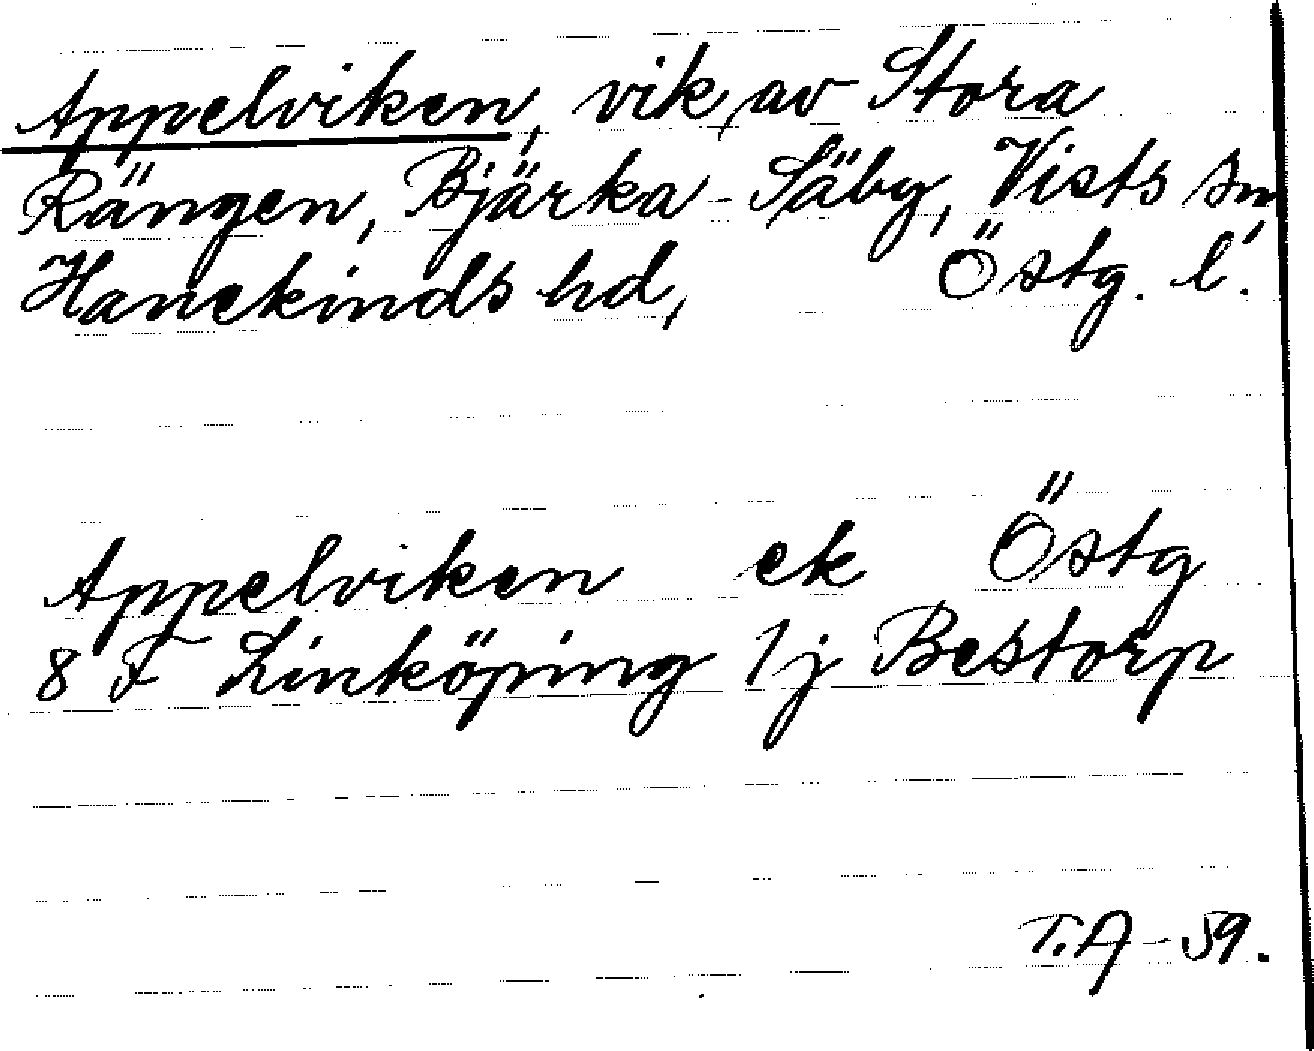 Appelviken, vik av Stora
Rängen, Bjärka-Säby, Vists sn,
Hanekinds hd, Östg. l.
Appelviken ek Östg
8 F Linköping 1j Bestorp
T.A-59.